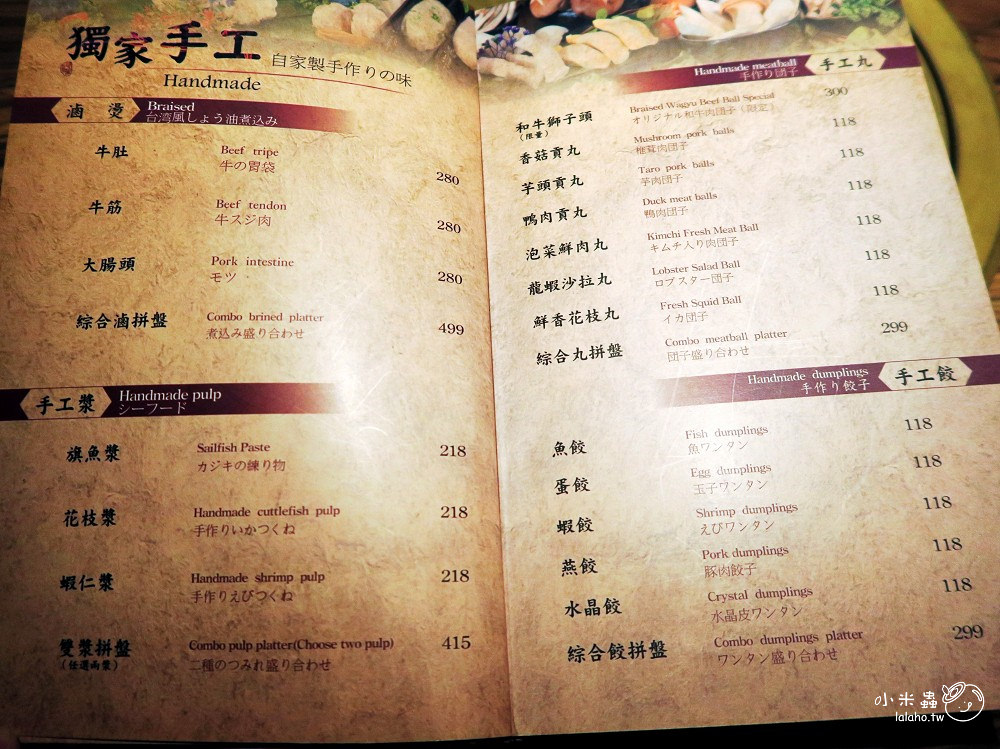 獨家手工 自家製手作りの味
Handmade
滷燙 Braised
台湾風しょう油煮込み
牛肚 Beef tripe
牛の胃袋 280
牛筋 Beef tendon
牛スジ肉 280
大腸頭 Pork intestine
モツ 280
綜合滷拼盤 Combo brined platter
煮込み盛り合わせ 499
手工漿 Handmade pulp
シーフード
旗魚漿 Sailfish Paste 218
カジキの練り物
花枝漿 Handmade cuttlefish pulp 218
手作りいかつくね
蝦仁漿 Handmade shrimp pulp 218
手作りえびつくね
雙漿拼盤 Combo pulp platter(Choose two pulp) 415
(任選兩漿) 二種のつみれ盛り合わせ
Handmade meatball 手工丸
手作り団子
和牛獅子頭 Braised Wagyu Beef Ball Special 300
(限量) オリジナル和牛肉団子(限定)
香菇貢丸 Mushroom pork balls 118
椎茸肉団子
芋頭貢丸 Taro pork balls 118
芋肉団子
鴨肉貢丸 Duck meat balls 118
鴨肉団子
泡菜鮮肉丸 Kimchi Fresh Meat Ball 118
キムチ入り肉団子
龍蝦沙拉丸 Lobster Salad Ball 118
ロブスター団子
鮮香花枝丸 Fresh Squid Ball 118
イカ団子
綜合丸拼盤 Combo meatball platter 299
団子盛り合わせ
Handmade dumplings 手工餃
手作り餃子
魚餃 Fish dumplings 118
魚ワンタン
蛋餃 Egg dumplings 118
玉子ワンタン
蝦餃 Shrimp dumplings 118
えびワンタン
燕餃 Pork dumplings 118
豚肉餃子
水晶餃 Crystal dumplings 118
水晶皮ワンタン
綜合餃拼盤 Combo dumplings platter 299
ワンタン盛り合わせ
小米蟲
lalaho.tw